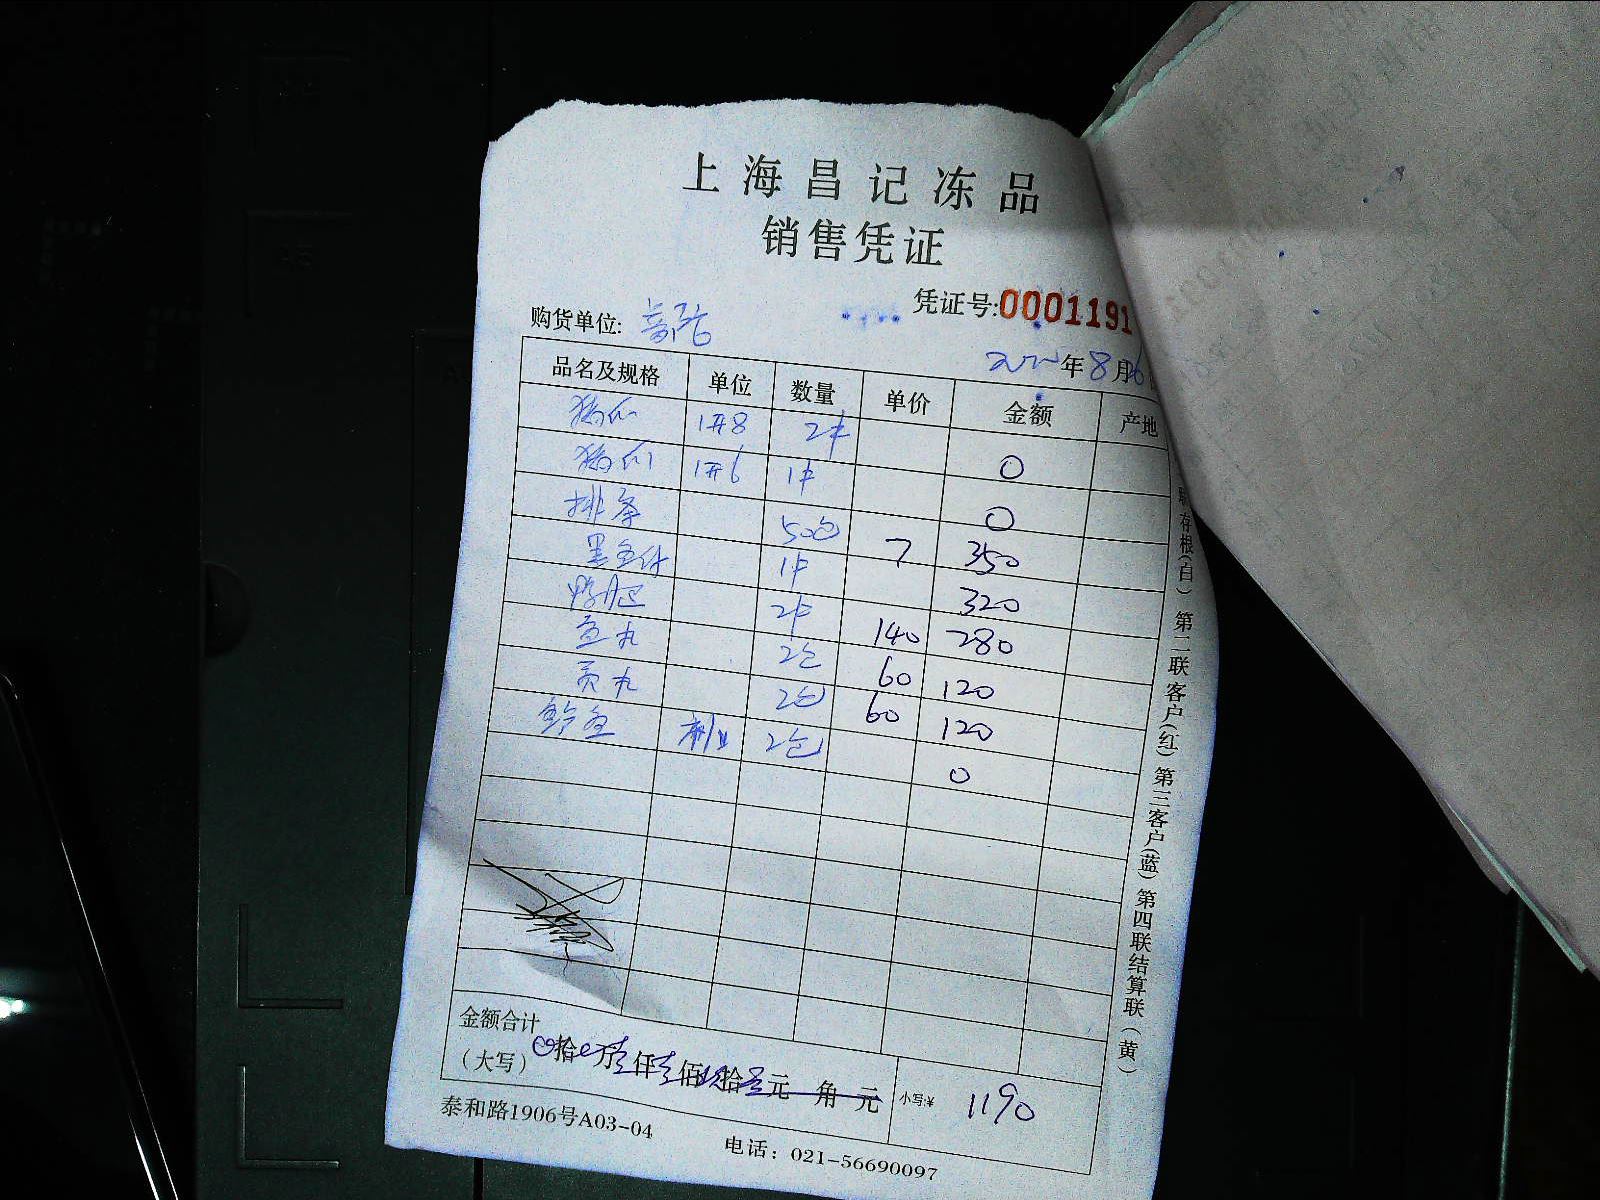 上海昌记冻品
销售凭证
凭证号:0001191
购货单位:
年8月6
品名及规格 单位 数量 单价 金额 产地
1开8 2件 0
1开6 1件 0
排条 50包 7 350
1件 320
鸭肫 2件 140 280
鱼丸 2包 60 120
贡丸 2包 60 120
2包 0
存根(白) 第二联客户(红) 第三客户(蓝) 第四联结算联(黄)
金额合计
(大写) 拾 万 仟 佰 拾 元 角 元 小写:¥ 1190
泰和路1906号A03-04 电话:021-56690097